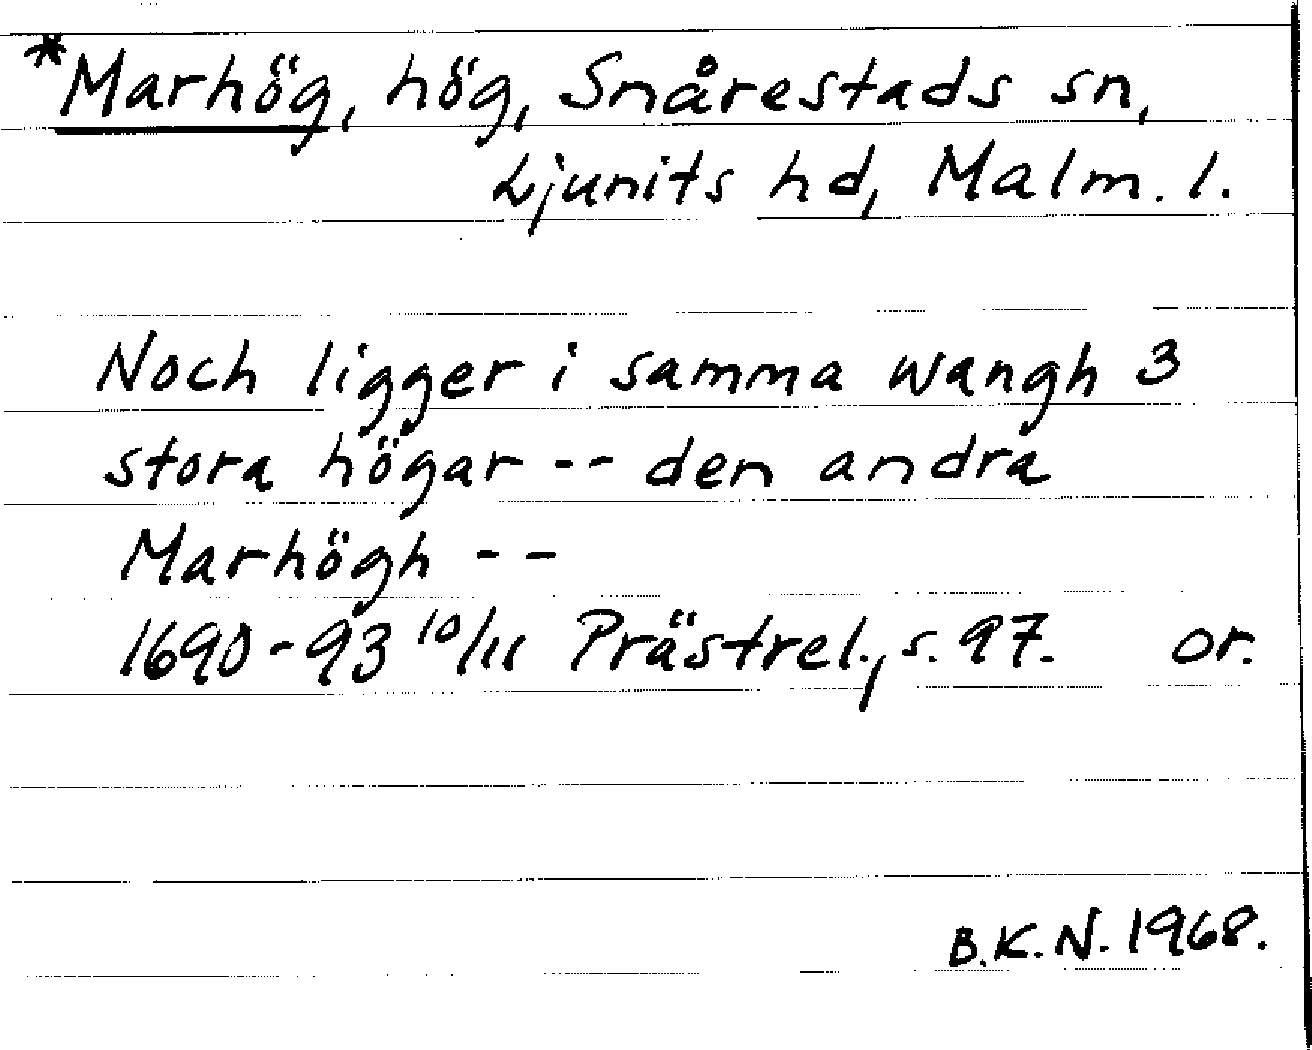 *Marhög, hög, Snårestads sn,
Ljunits hd, Malm. l.
Noch ligger i samma wangh 3
stora högar -- den andra
Marhögh --
1690-93 10/11 Prästrel., s. 97. or.
B.K.N. 1968.